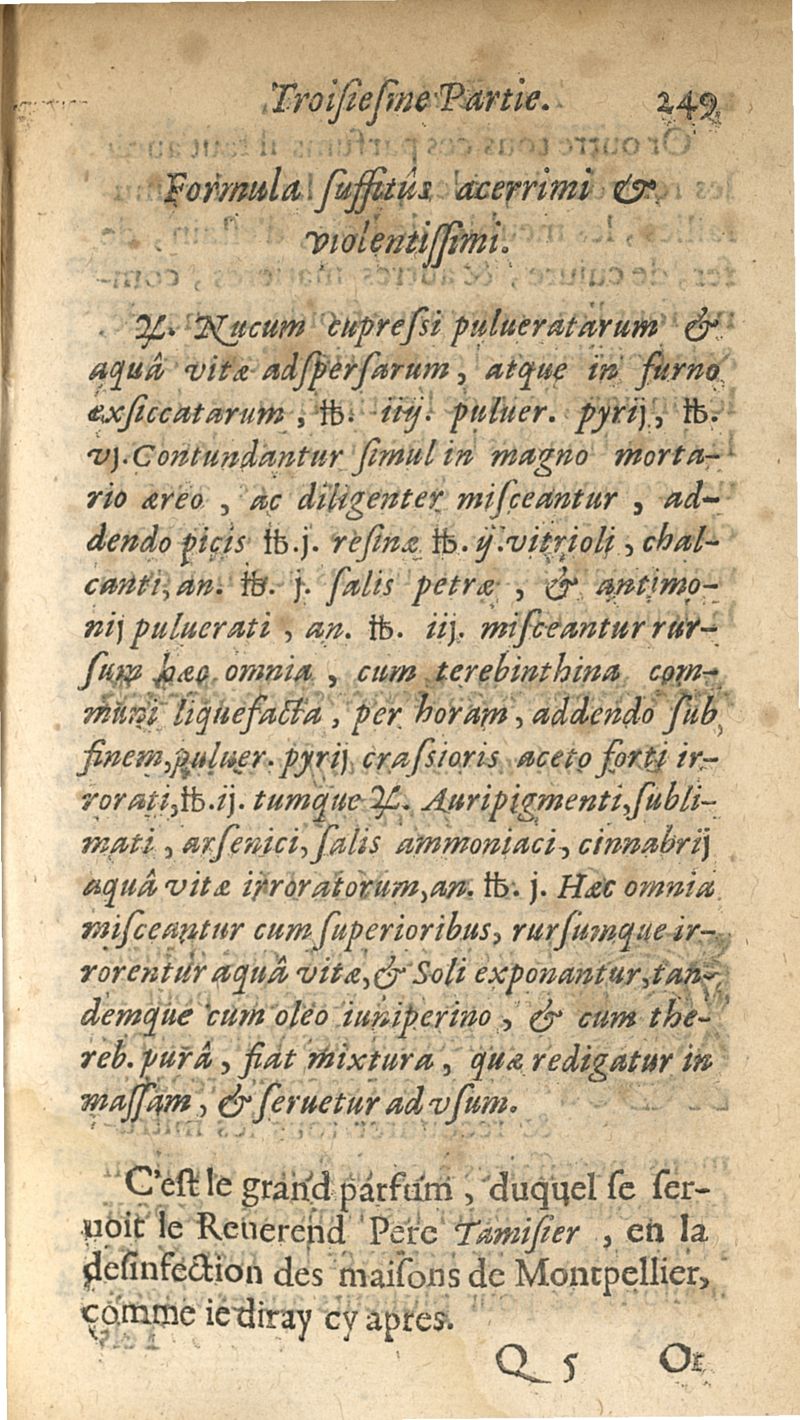 Troiſieſme Partie. 249
Formula ſuffitûs acerrimi &
violentiſſimi.
℞. Nucum cupreſsi pulueratarum &
aquâ vitæ adſperſarum, atque in furno
exſiccatarum, ℔. iiij. puluer. pyrij, ℔.
vj. Contundantur ſimul in magno morta-
rio æreo, ac diligenter miſceantur, ad-
dendo picis ℔. j. reſinæ ℔. ij. vitrioli, chal-
canti, an. ℔. j. ſalis petræ, & antimo-
nij puluerati, an. ℔. iij. miſceantur rur-
ſum hæc omnia, cum terebinthina com-
muni liquefacta, per horam, addendo ſub
finem, puluer. pyrij craſsioris aceto forti ir-
rorati, ℔. ij. tumque ℞. Auripigmenti, ſubli-
mati, arſenici, ſalis ammoniaci, cinnabrij
aquâ vitæ irroratorum, an. ℔. j. Hæc omnia
miſceantur cum ſuperioribus, rurſumque ir-
rorentur aquâ vitæ, & Soli exponantur, tan-
demque cum oleo iuniperino, & cum the-
reb. purâ, fiat mixtura, quæ redigatur in
maſſam, & ſeruetur ad vſum.
C'eſt le grand parfum, duquel ſe ſer-
uoit le Reuerend Pere Tamiſier, en la
deſinfection des maiſons de Montpellier,
comme ie diray cy apres.
Q 5 Or